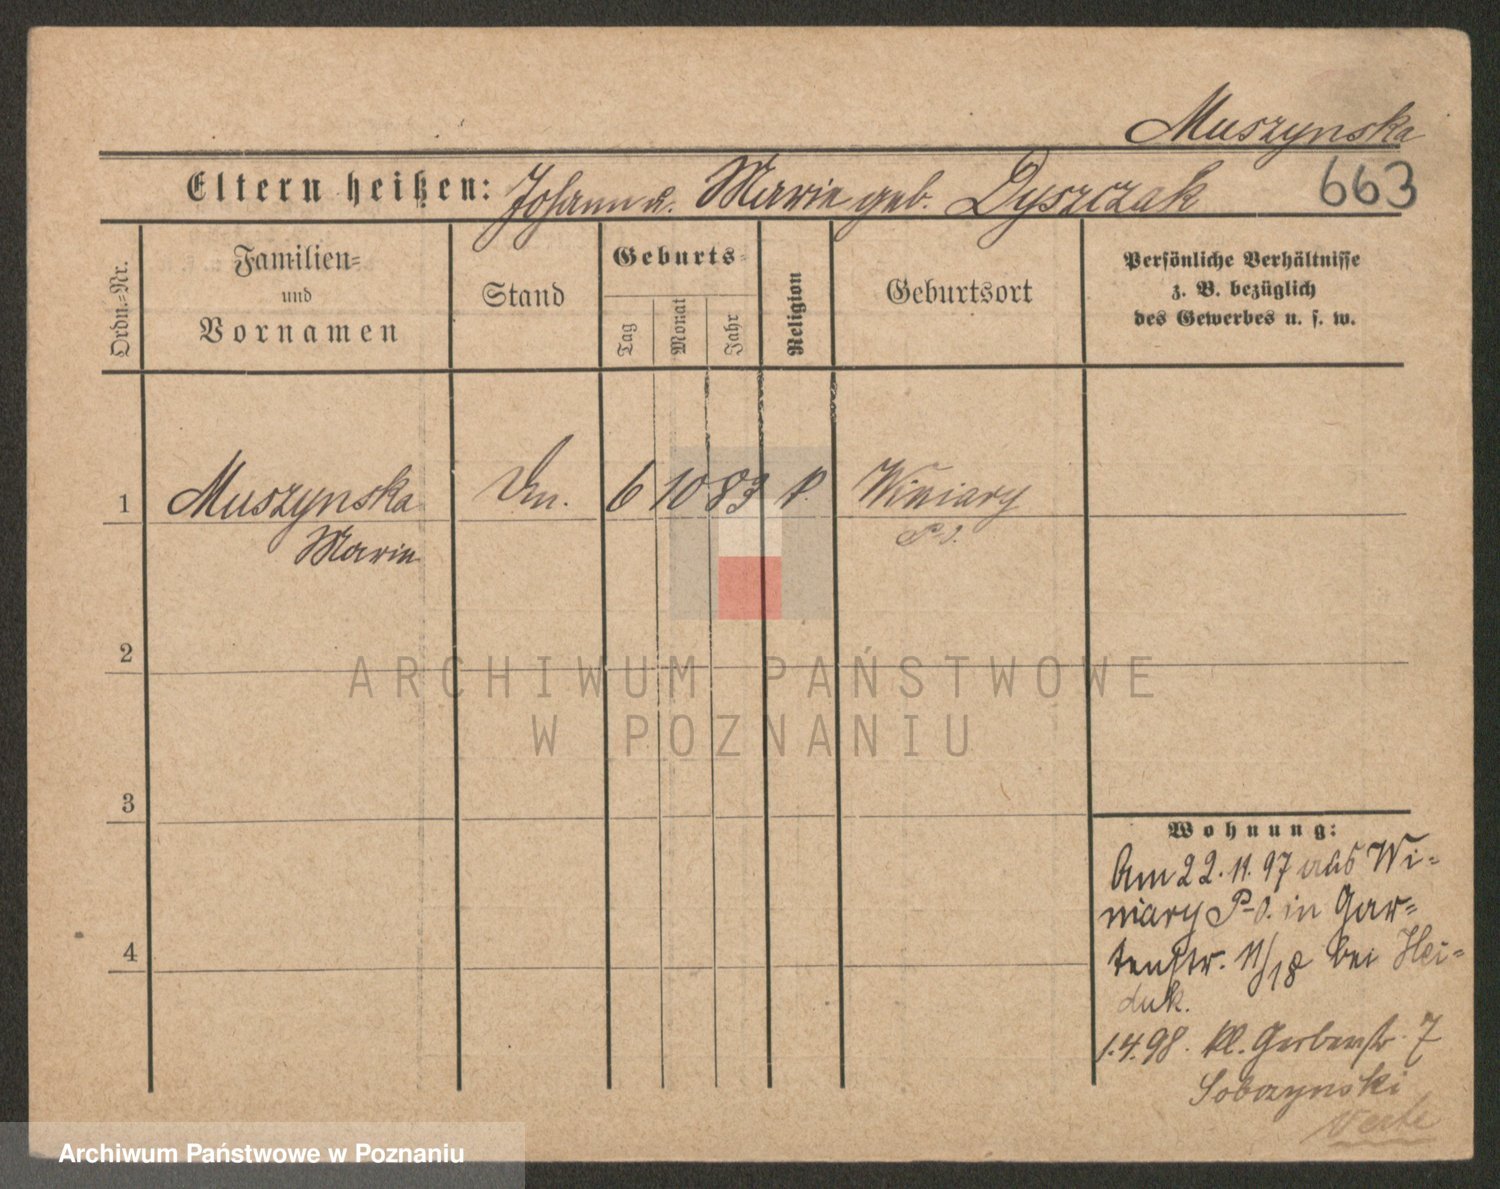 Muszynska
Eltern heißen: Johann u. Marie geb. Dyszczak 663
Ordn.=Nr.
Familien=
und
Vornamen
Stand
Geburts=
Tag
Monat
Jahr
Religion
Geburtsort
Persönliche Verhältnisse
z. B. bezüglich
des Gewerbes u. s. w.
1 Muszynska 6 10 83 k. Winiary
Marie P-O.
2
ARCHIWUM PAŃSTWOWE
W POZNANIU
3
Wohnung:
Am 22.11.97 aus Wi=
niary P-O. in Gar=
tenstr. 11/18 bei Hei=
duk.
4
1.4.98. kl. Gerberstr. 7
Sobczynski
Verte
Archiwum Państwowe w Poznaniu